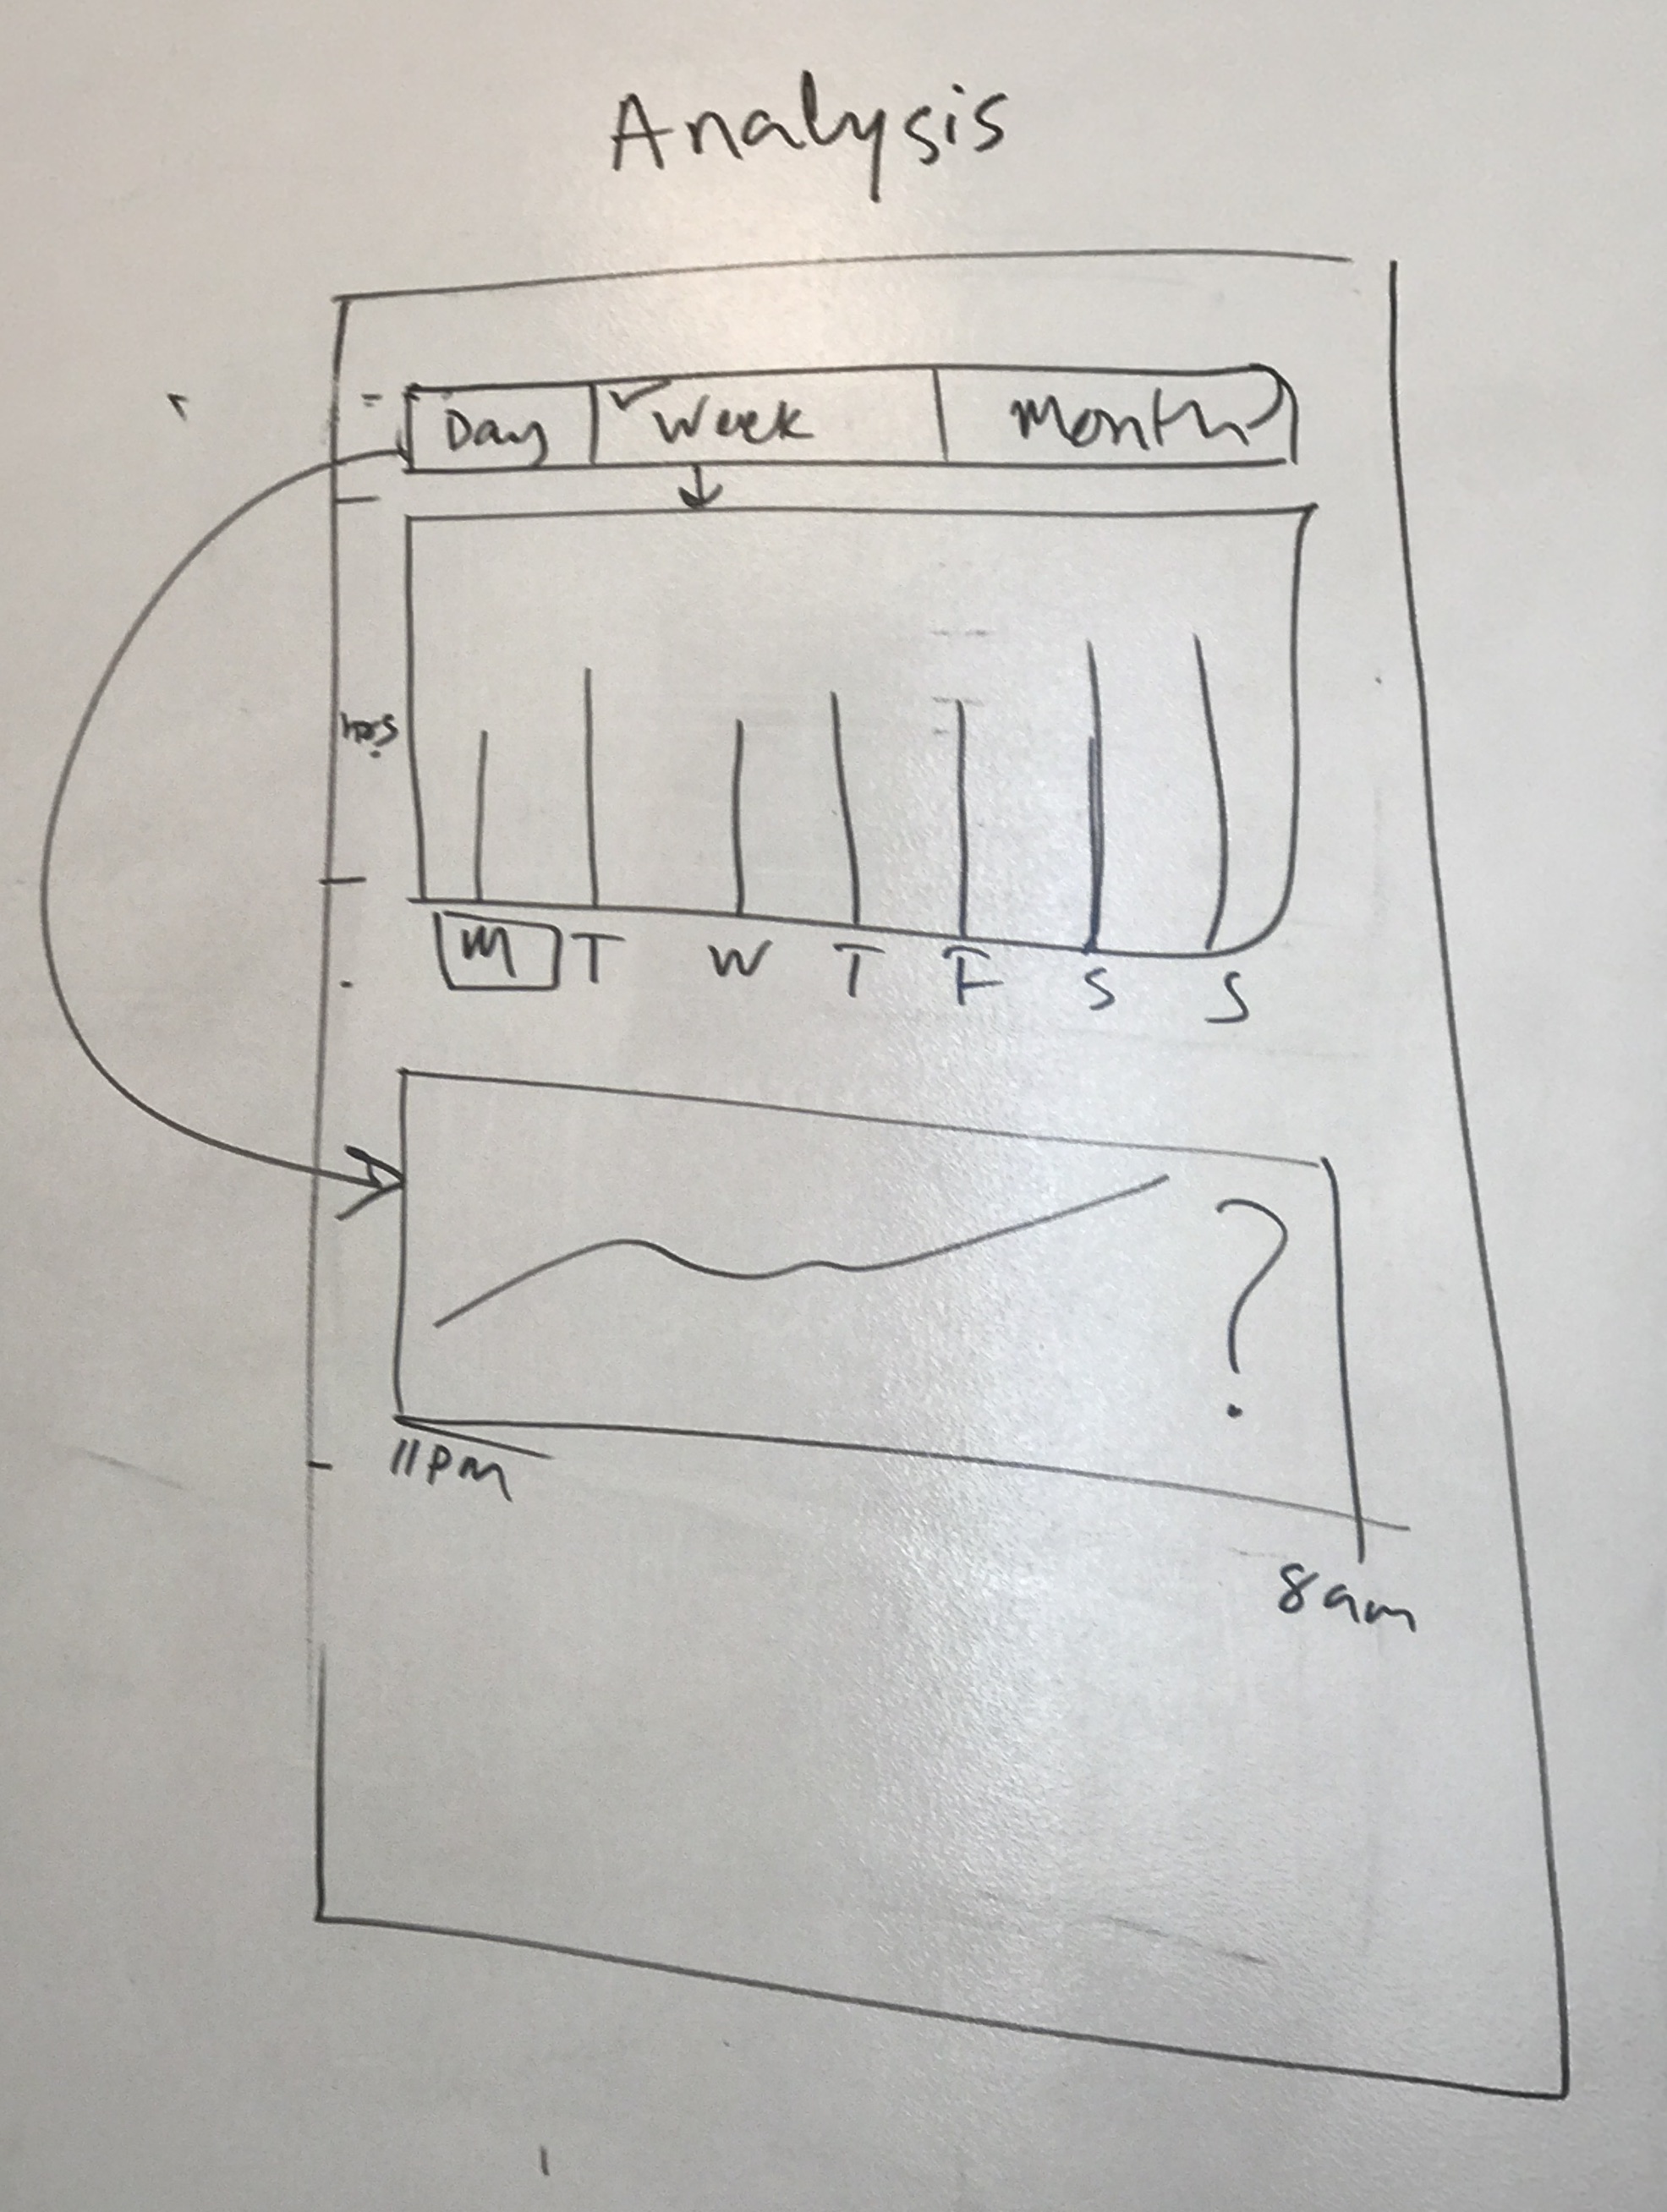 Analysis
Day Week Month
hrs
M T W T F S S
?
11pm
8am